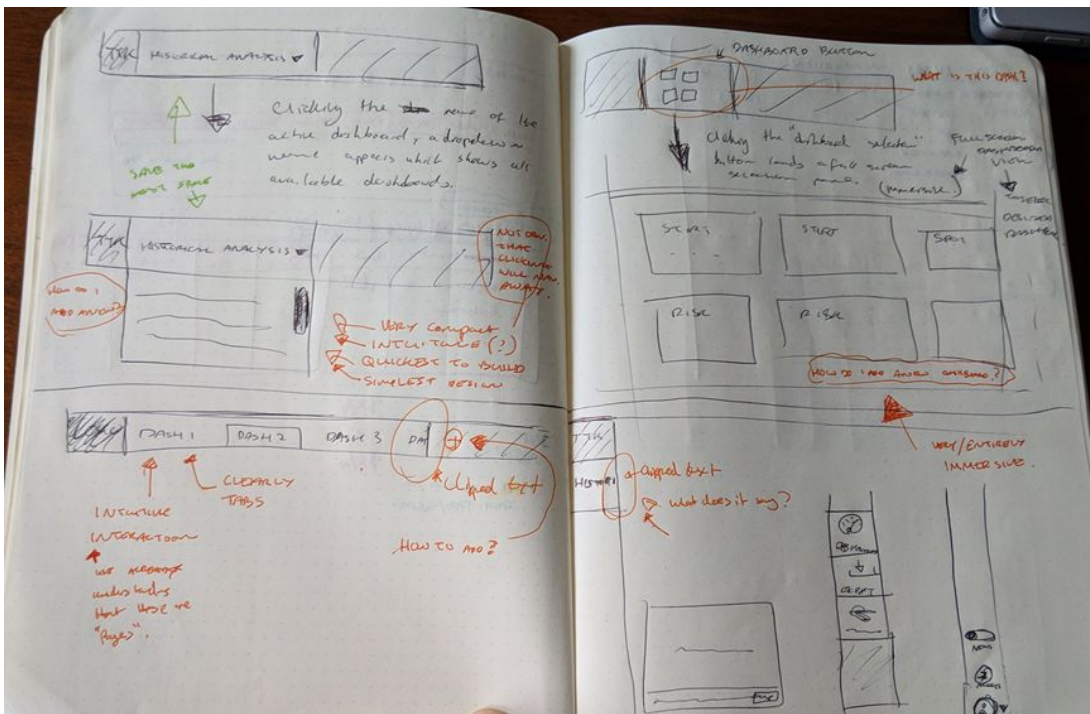 TTK HISTORICAL ANALYSIS
Clicking the name of the
active dashboard, a dropdown
menu appears which shows all
available dashboards.
SAVE THE
MOST SPACE
HISTORICAL ANALYSIS
NOT OBV.
THAT
CLICKING
WILL
HOW DO I
ADD ANOTHER?
VERY Compact
INTUITIVE (?)
QUICKEST TO BUILD
SIMPLEST DESIGN
DASH 1
DASH 2
DASH 3
DA
+
CLEARLY
TABS
Clipped text
INTUITIVE
INTERACTION
HOW TO ADD?
we already
understand
that these are
"Pages".
DASHBOARD BUTTON
WHAT IS THIS DASH?
Clicking the "dashboard selector"
button lands a full screen
selection panel. (immersive.)
FULL SCREEN
VIEW
TO SELECT
DESIRED
DASHBOARD
START
START
RISK
RISK
HOW DO I ADD A NEW DASHBOARD?
VERY/ENTIRELY
IMMERSIVE.
TTK
HISTORI
Clipped text
what does it say?
NEWS